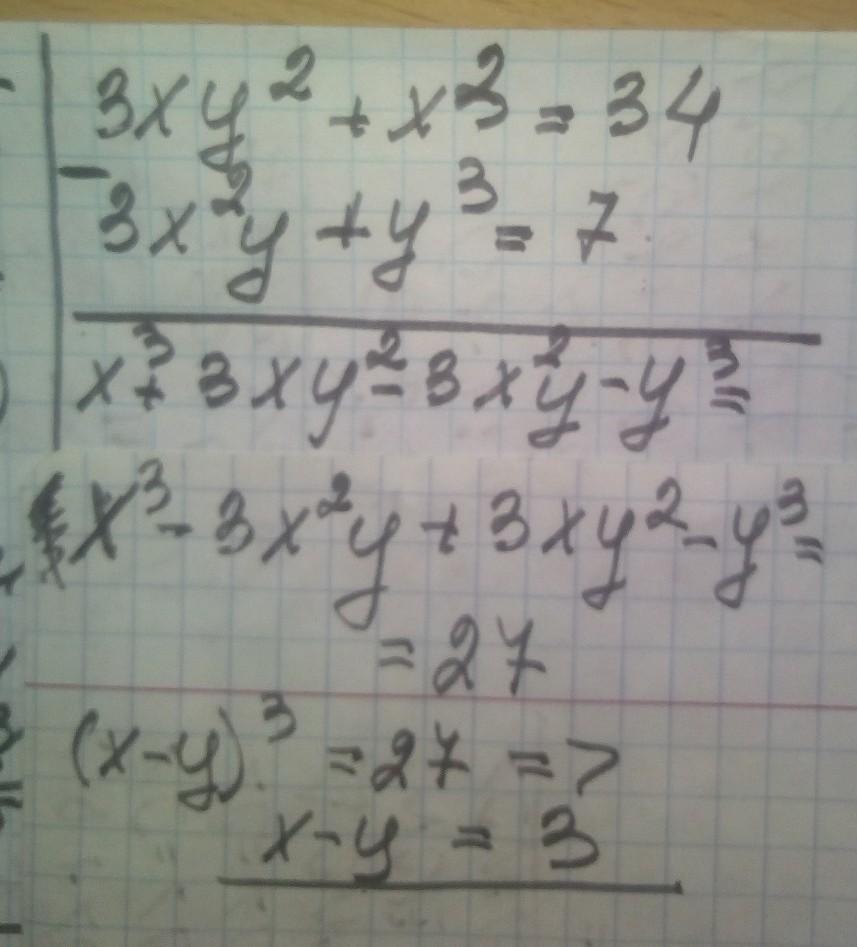 3xy² + x³ = 34
- 3x²y + y³ = 7
x³ + 3xy² - 3x²y - y³ =
x³ - 3x²y + 3xy² - y³ =
= 27
(x-y)³ = 27 =>
x - y = 3